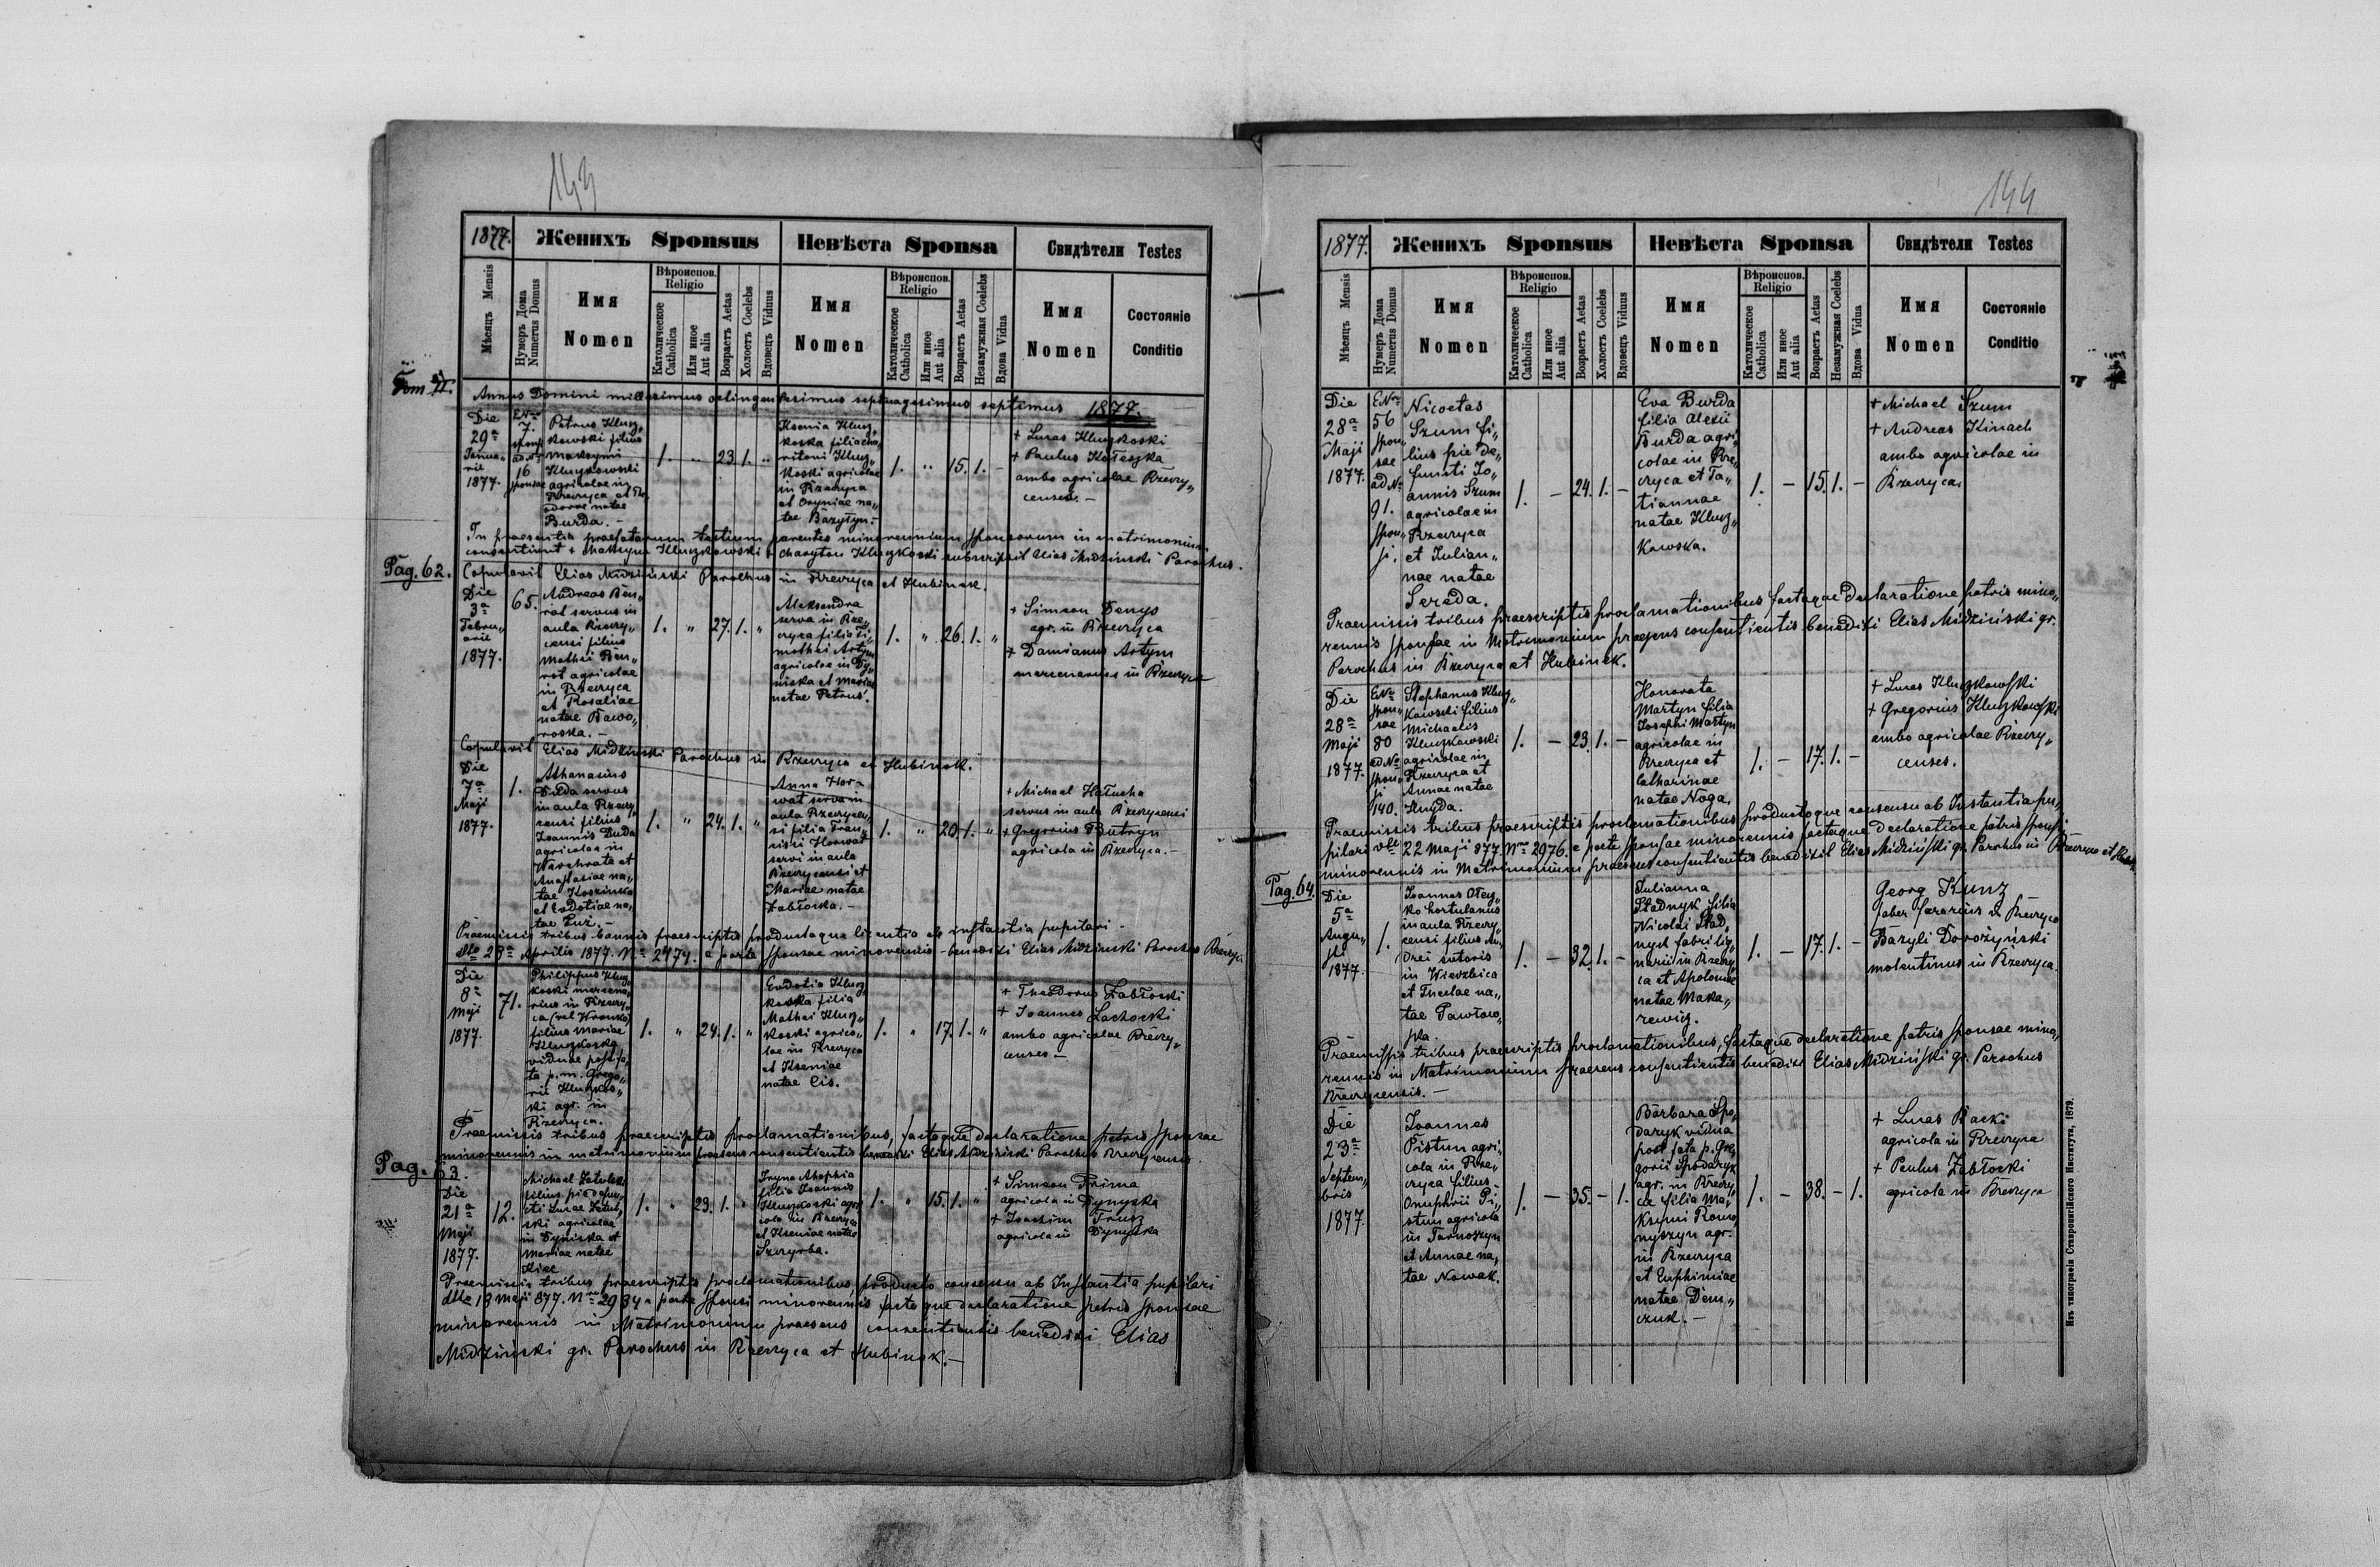 143
1877. Женихъ Sponsus Невѣста Sponsa Свидѣтели Testes
Мѣсяцъ Mensis
Нумеръ Дома
Numerus Domus
Имя
Nomen
Вѣроиспов.
Religio
Католическое
Catholica
Или иное
Aut alia
Возрастъ Aetas
Холостъ Coelebs
Вдовецъ Viduus
Имя
Nomen
Вѣроиспов.
Religio
Католическое
Catholica
Или иное
Aut alia
Возрастъ Aetas
Незамужная Coelebs
Вдова Vidua
Имя
Nomen
Состояніе
Conditio
Annus Domini millesimus octingentesimus septuagesimus septimus 1877.
Die
29a
Janua„
rii
1877.
7.
sponsi
ad No
16
sponsae
Petrus Klucz„
kowski filius
Maksymi
Kluczkowski
agricolae in
Rzeczyca et The„
odorae natae
Burda. –
1. „ 23. 1. „
Ksenia Klucz„
koska filia cha„
ritoni Klucz„
koski agricolae
in Rzeczyca
et Oryniae na„
tae Bazytyn. –
1. „ 15. 1. –
+ Lucas Kluczkoski
+ Paulus Kołeszka
ambo agricolae Rzeczy„
censes. –
In praesentia praefatorum testium parentes minorennium sponsorum in matrimonium
consentiunt + Maksym Kluczkowski + Charyton Kluczkoski subscripsit Elias Midziński Parochus.
Pag. 62.
Copulavit Elias Midziński Parochus in Rzeczyca et Hubinek.
Die
3a
Febru„
arii
1877.
65.
Andreas Ben„
rot servus in
aula Rzeczy„
censi filius
Mathei Ben„
rot agricolae
in Rzeczyca
et Rosaliae
natae Bawo„
roska. –
1. „ 27. 1. „
Aleksandra
serva in Rze„
czyca filia Ti„
mothei Artym
agricolae in Dy„
niska et Mariae
natae Petrus.
1. „ 26. 1. „
+ Simeon Denys
agr. in Rzeczyca
+ Damianus Artym
mercenarius in Rzeczyca
Copulavit Elias Midziński Parochus in Rzeczyca et Hubinek.
Die
7a
Maji
1877.
1.
Athanasius
Duda servus
in aula Rzeczy„
censi filius
Ioannis Duda
agricolae in
Werchrata et
Anastasiae na„
tae Kozinko
et Evdotiae na„
tae Luz. –
1. „ 24. 1. „
Anna Hor„
wat serva in
aula Rzeczycen„
si filia Fran„
cisci Horwat
servi in aula
Rzeczycensi et
Mariae natae
Zabłocka. –
1. „ 20. 1. „
+ Michael Hałucha
servus in aula Rzeczycensi
+ Gregorius Butryn
agricola in Rzeczyca. –
Praemissis tribus bannis praescriptis productaque licentia ab instantia pupilari
dtto 23a Aprilis 1877. No 2474. a parte sponsae minorennis – benedixi Elias Midziński Parochus Rzeczyc.
Die
8a
Maji
1877.
71.
Philippus Klucz„
koski mercena„
rius in Rzeczy„
ca (vel Wronko)
filius Mariae
Kluczkoska
viduae post fa„
ta p. m. Grego„
rii Kluczko„
ski agr. in
Rzeczyca.
1. „ 24. 1. „
Evdotia Klucz„
koska filia
Mathei Klucz„
koski agrico„
lae in Rzeczyca
et Kseniae
natae Cis.
1. „ 17. 1. „
+ Theodorus Zabłocki
+ Ioannes Lachocki
ambo agricolae Rzeczy„
censes –
Praemissis tribus praescriptis proclamationibus, factaque declaratione patris sponsae
minorennis in matrimonium praesens consentientis benedixi Elias Midziński Parochus Rzeczycensis.
Pag. 63.
Die
21a
Maji
1877.
12.
filius pie defun„
cti Lucae
ski agricolae
in Dyniska et
Mariae natae
1. „ 23. 1. „
Iryna Ahaphia
filia Ioannis
Kluczkoski agri„
cola in Rzeczyca
et Kseniae natae
Szczyrba.
1. „ 15. 1. „
+ Simeon Prima
agricola in Dynyska
+ Joachim Trusz
agricola in Dynyska
Praemissis tribus praescriptis proclamationibus, producto consensu ab Instantia pupilari
dtto 18 Maji 877. No 2934 a parte sponsi minorennis factaque declaratione patris sponsae
minorennis in Matrimonium praesens consentientis benedixi Elias
Midziński gr. Parochus in Rzeczyca et Hubinek. –
144
1877. Женихъ Sponsus Невѣста Sponsa Свидѣтели Testes
Мѣсяцъ Mensis
Нумеръ Дома
Numerus Domus
Имя
Nomen
Вѣроиспов.
Religio
Католическое
Catholica
Или иное
Aut alia
Возрастъ Aetas
Холостъ Coelebs
Вдовецъ Viduus
Имя
Nomen
Вѣроиспов.
Religio
Католическое
Catholica
Или иное
Aut alia
Возрастъ Aetas
Незамужная Coelebs
Вдова Vidua
Имя
Nomen
Состояніе
Conditio
Die
28a
Maji
1877.
56
spon„
sae
ad No
91.
spon„
si.
Nicoetas
Szum fi„
lius pie de„
functi Io„
annis Szum
agricolae in
Rzeczyca
et Iulian„
nae natae
Sereda.
1. – 24. 1. –
Eva Burda
filia Alexii
Burda agri„
colae in Rze„
czyca et Ta„
tiannae
natae Klucz„
kowska.
1. – 15. 1. –
+ Michael Szum
+ Andreas Kinach
ambo agricolae in
Rzeczyca.
Praemissis tribus praescriptis proclamationibus factaque declaratione patris mino„
rennis sponsae in Matrimonium praesens consentientis benedixi Elias Midziński gr.
Parochus in Rzeczyca et Hubinek.
Die
28a
Maji
1877.
spon„
sae
80
ad No
spon„
si
140.
Stephanus Klucz„
kowski filius
Michaelis
Kluczkowski
agricolae in
Rzeczyca et
Annae natae
1. – 23. 1. –
Honorata
Martyn filia
Iosephi Martyn
agricolae in
Rzeczyca et
Catharinae
natae Noga.
1. – 17. 1. –
+ Lucas Kluczkowski
+ Gregorius Kluczkowski
ambo agricolae Rzeczy„
censes.
Praemissis tribus praescriptis proclamationibus productoque consensu ab Instantia pu„
pilari dtto 22 Maji 877 No 2976. a parte sponsae minorennis factaque declaratione patris sponsi
minorennis in Matrimonium praesens consentientis benedixit Elias Midziński gr. Parochus in Rzeczyca et Hubi.
Pag. 64.
Die
5a
Augu„
sti
1877.
1.
Ioannes Ołey„
ko hortulanus
in aula Rzeczy„
censi filius An„
drei sutoris
in Wierzbica
et Theclae na„
tae Pawłow„
ska.
1. – 32. 1. –
Iulianna
Stadnyk filia
Nicolai Stad„
nyk fabri lig„
narii in Rzeczy„
ca et Apoloniae
natae Maka„
rewicz.
1. – 17. 1. –
Georg Kunz
faber ferarius in Rzeczyca
Bazyli Dorożyński
molentinus in Rzeczyca.
Praemissis tribus praescriptis proclamationibus, factaque declaratione patris sponsae mino„
rennis in Matrimonium praesens consentientis benedixi Elias Midziński gr. Parochus
Rzeczycensis. –
Die
23a
Septem„
bris
1877.
Ioannes
Pistun agri„
cola in Rze„
czyca filius
Onuphrii Pi„
stun agricola
in Tarnoszyn
et Annae na„
tae Nowak.
1. – 35. – 1.
Barbara Spo„
daryk vidua
post fata p. Gre„
gorii Spodaryk
agr. in Rzeczy„
ca filia Ma„
ksymi Roma„
nyszyn agr.
in Rzeczyca
et Euphimiae
natae Dem„
czuk. –
1. – 38. – 1.
+ Lucas Backi
agricola in Rzeczyca
+ Paulus Zabłocki
agricola in Rzeczyca
Изъ типографіи Ставропигійского Института, 1879.